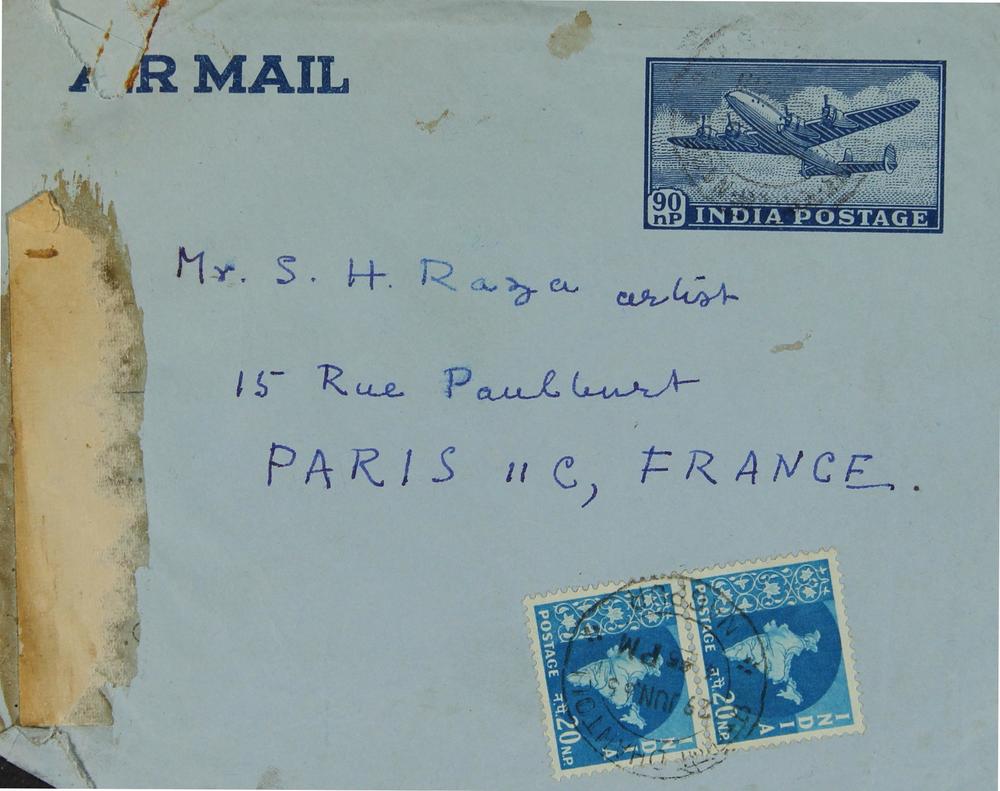 AIR MAIL
90 nP INDIA POSTAGE
Mr. S. H. Raza artist
15 Rue Paulbert
PARIS 11 C, FRANCE.
POSTAGE न.पै. 20 N.P. INDIA
POSTAGE न.पै. 20 N.P. INDIA
PM
JUN 65